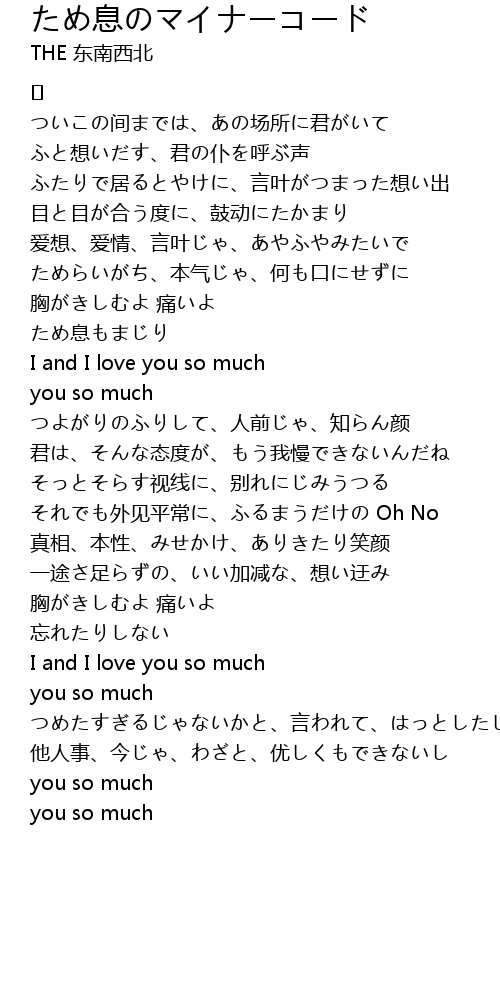 ため息のマイナーコード
THE 东南西北
ついこの间までは、あの场所に君がいて
ふと想いだす、君の仆を呼ぶ声
ふたりで居るとやけに、言叶がつまった想い出
目と目が合う度に、鼓动にたかまり
爱想、爱情、言叶じゃ、あやふやみたいで
ためらいがち、本气じゃ、何も口にせずに
胸がきしむよ 痛いよ
ため息もまじり
I and I love you so much
you so much
つよがりのふりして、人前じゃ、知らん颜
君は、そんな态度が、もう我慢できないんだね
そっとそらす视线に、别れにじみうつる
それでも外见平常に、ふるまうだけの Oh No
真相、本性、みせかけ、ありきたり笑颜
一途さ足らずの、いい加减な、想い迂み
胸がきしむよ 痛いよ
忘れたりしない
I and I love you so much
you so much
つめたすぎるじゃないかと、言われて、はっとしたし
他人事、今じゃ、わざと、优しくもできないし
you so much
you so much